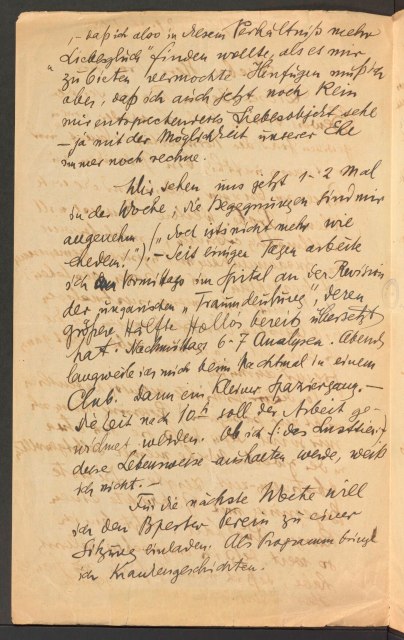 ,– daß ich also in diesem Verhältniß mehr
„Liebesglück“ finden wollte, als es mir
zu bieten vermochte. Hinzufügen muß ich
aber, daß ich auch jetzt noch kein
mir entsprechenderes Liebesobjekt sehe
– ja mit der Möglichkeit unserer Ehe
immer noch rechne.
Wir sehen uns jetzt 1–2 Mal
in der Woche; die Begegnungen sind mir
angenehm („doch ists nicht mehr wie
ehedem!“). – Seit einigen Tagen arbeite
ich Vormittags im Spital an der Revision
der ungarischen „Traumdeutung“, deren
größere Hälfte Hollós bereits übersetzt
hat. Nachmittags 6–7 Analysen. Abends
langweile ich mich beim Nachtmal in einem
Club. Dann ein kleiner Spaziergang. –
Die Zeit nach 10h soll der Arbeit ge-
widmet werden. Ob ich (: das Lusttier :)
diese Lebensweise aushalten werde, weiß
ich nicht. –
Für die nächste Woche will
ich den Bpester Verein zu einer
Sitzung einladen. Als Programm bringe
ich Krankengeschichten.